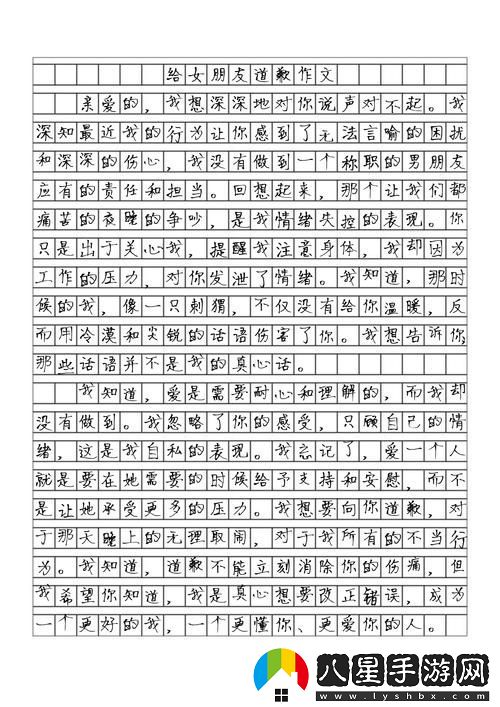 给女朋友道歉作文
亲爱的，我想深深地对你说声对不起。我
深知最近我的行为让你感到了无法言喻的困扰
和深深的伤心，我没有做到一个称职的男朋友
应有的责任和担当。回想起来，那个让我们都
痛苦的夜晚的争吵，是我情绪失控的表现。你
只是出于关心我，提醒我注意身体，我却因为
工作的压力，对你发泄了情绪。我知道，那时
候的我，像一只刺猬，不仅没有给你温暖，反
而用冷漠和尖锐的话语伤害了你。我想告诉你，
那些话语并不是我的真心话。
我知道，爱是需要耐心和理解的，而我却
没有做到。我忽略了你的感受，只顾自己的情
绪，这是我自私的表现。我忘记了，爱一个人
就是要在她需要的时候给予支持和安慰，而不
是让她承受更多的压力。我想要向你道歉，对
于那天晚上的无理取闹，对于我所有的不当行
为。我知道，道歉不能立刻消除你的伤痛，但
我希望你知道，我是真心想要改正错误，成为
一个更好的我，一个更懂你、更爱你的人。
八星手游网
www.lyshbx.com